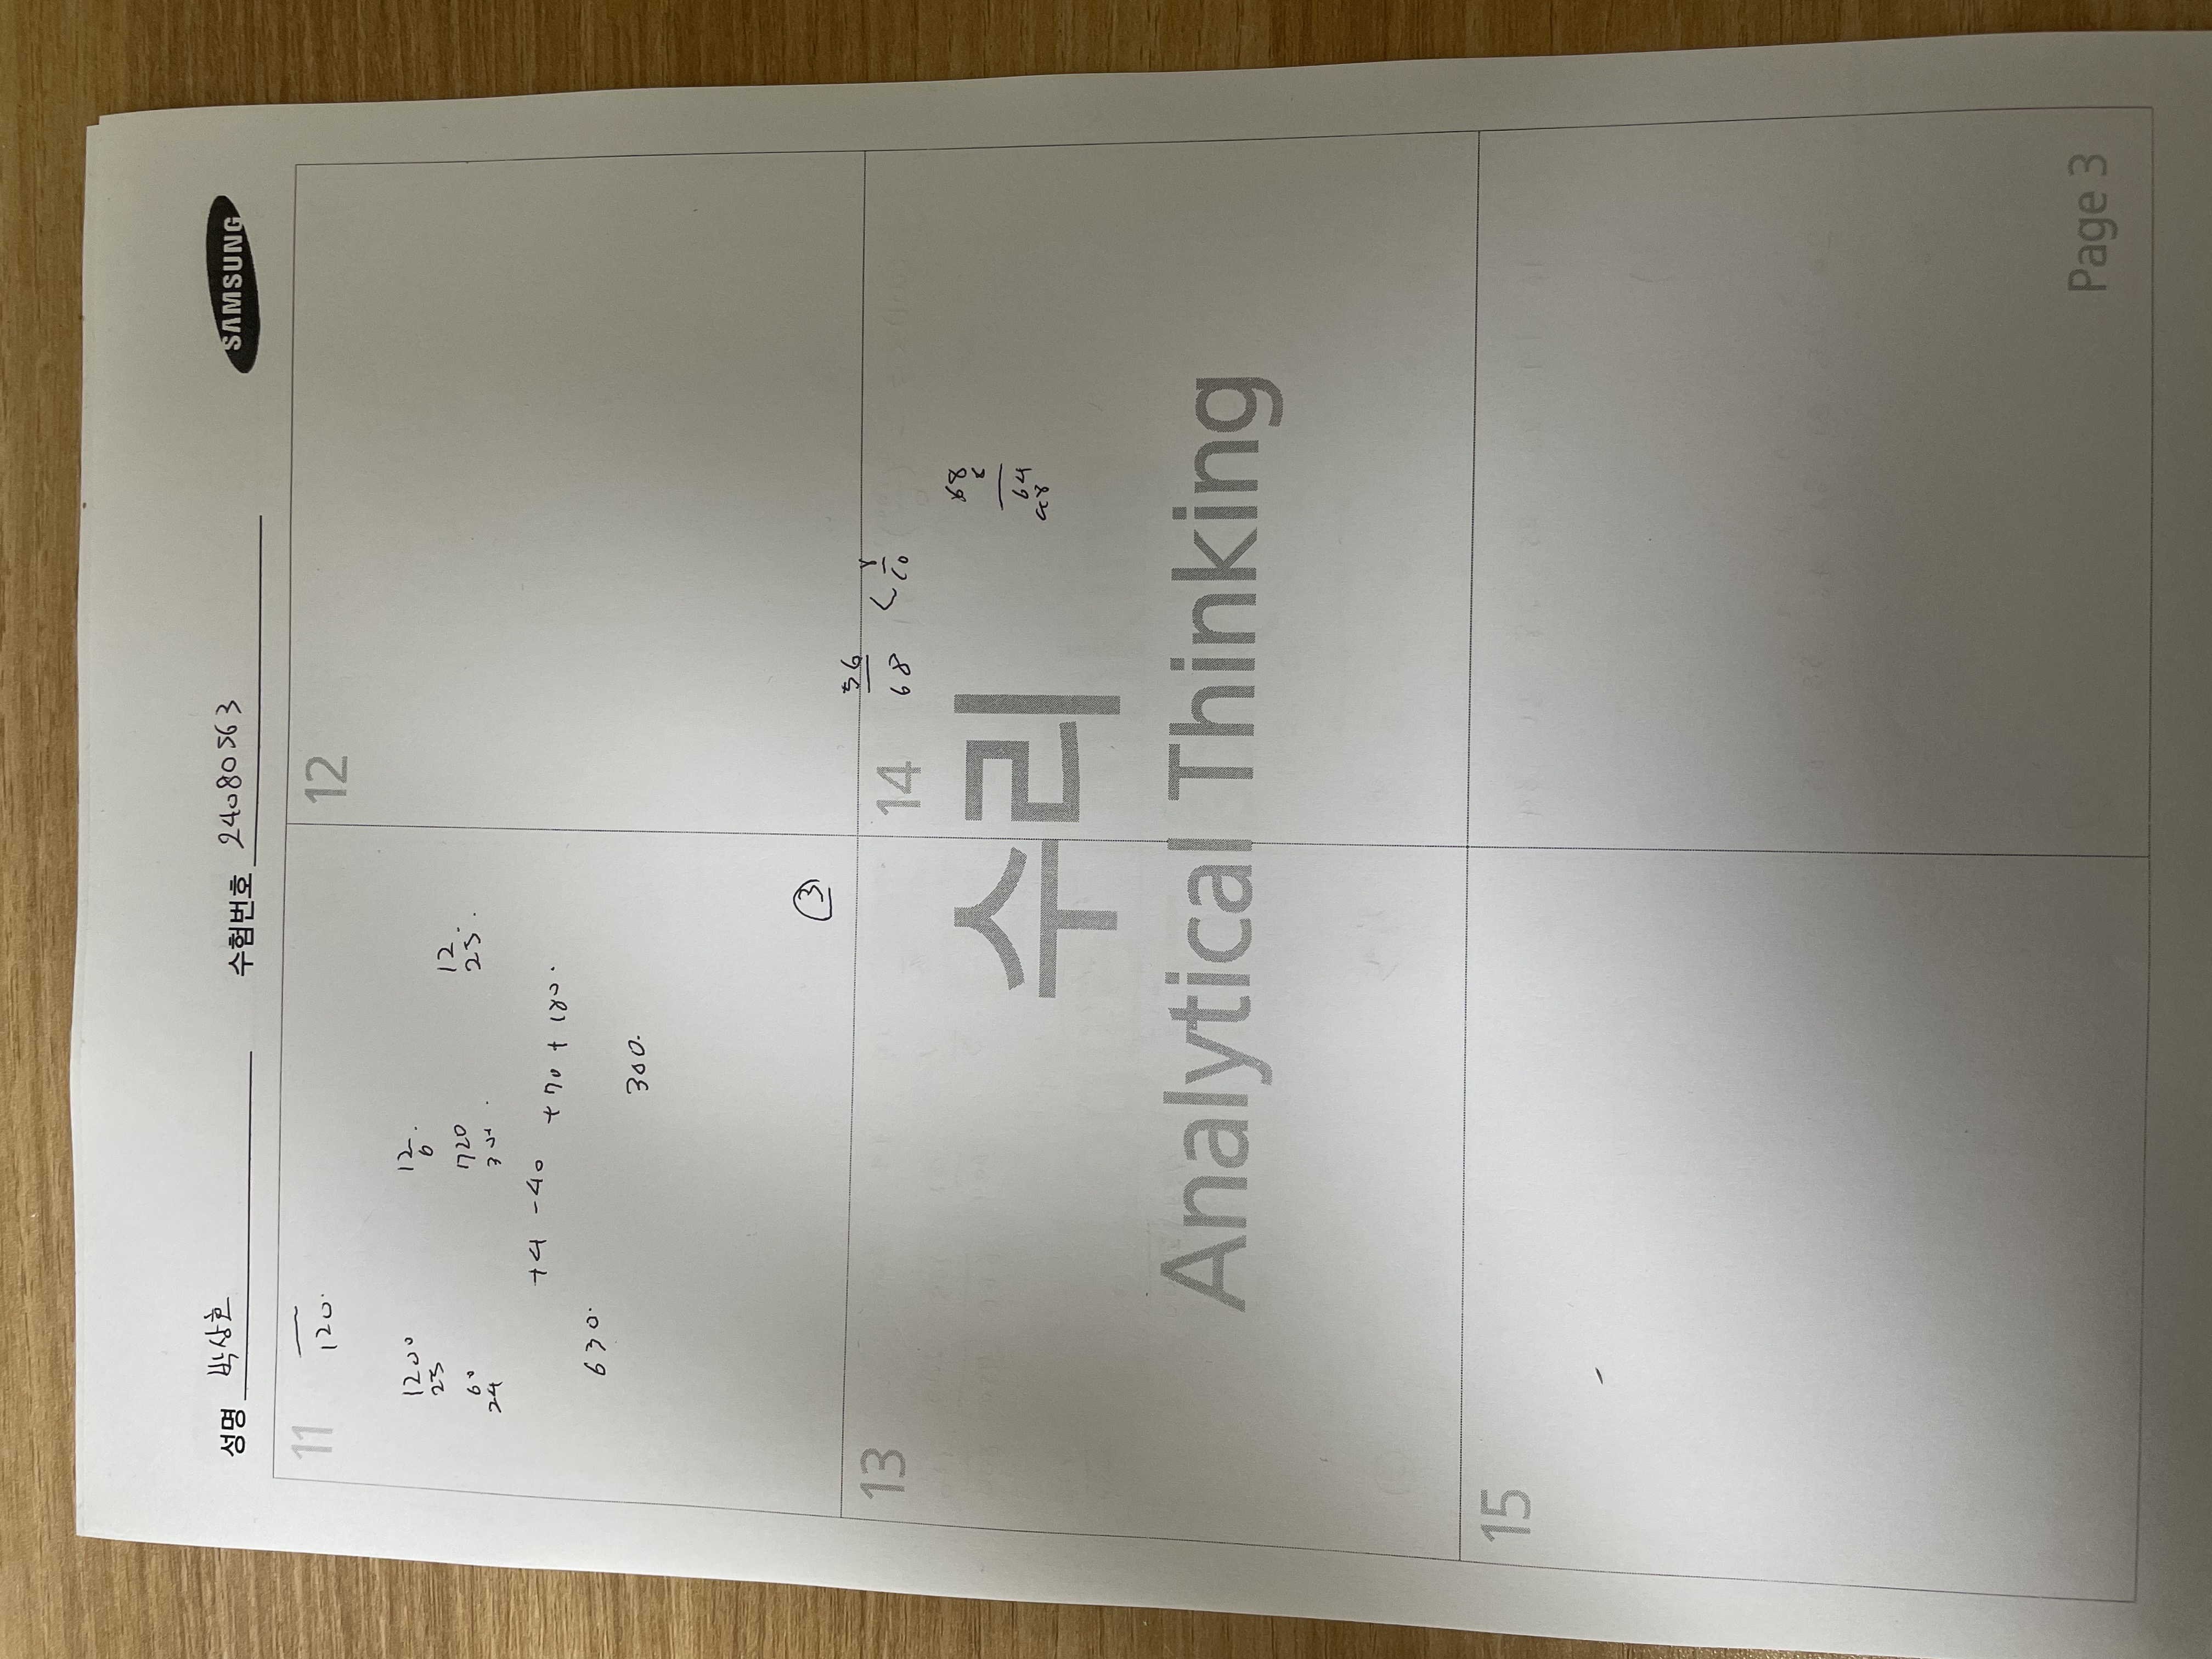 성명 박상호 수험번호 24080563 SAMSUNG
11
120.
1200
25
60
24
12.
6
1720
12.
25.
+4 -40 +70 +180.
630.
300.
③
12
13
14
56
68
<
8
10
68
64
48
수리
Analytical Thinking
15
Page 3